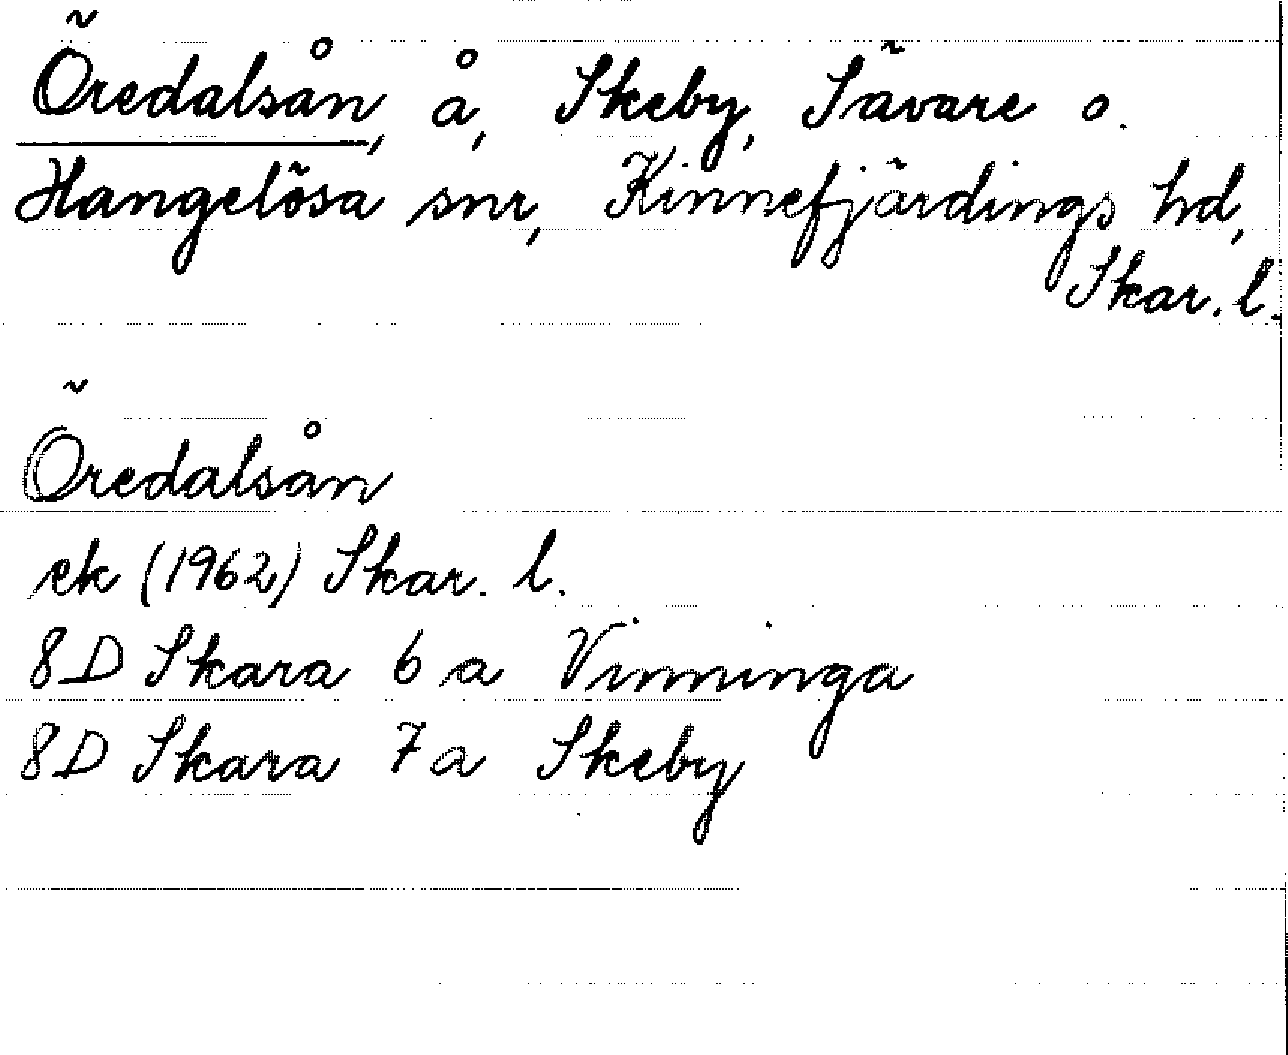 Öredalsån, å, Skeby, Sävare o.
Hangelösa snr, Kinnefjärdings hd,
Skar. l.
Öredalsån
ek (1962) Skar. l.
8D Skara 6 a Vinninga
8D Skara 7a Skeby